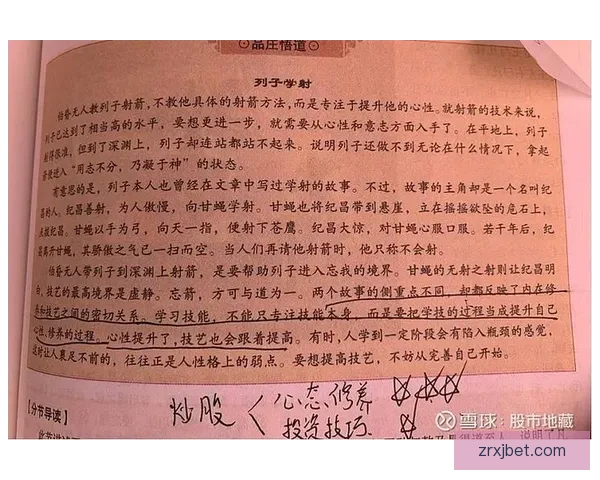 ⊙品庄悟道⊙
列子学射
伯昏无人教列子射箭，不教他具体的射箭方法，而是专注于提升他的心性。就射箭的技术来说，
列子已达到了相当高的水平，要想更进一步，就需要从心性和意志方面入手了。在平地上，列子
射得很准，但到了深渊上，列子却连站都站不起来。说明列子还做不到无论在什么情况下，拿起
箭便进入“用志不分，乃凝于神”的状态。
有意思的是，列子本人也曾经在文章中写过学射的故事。不过，故事的主角却是一个名叫纪
昌的人。纪昌善射，为人傲慢，向甘蝇学射。甘蝇也将纪昌带到悬崖，立在摇摇欲坠的危石上，
纪昌。甘蝇以手为弓，向天一指，便射下苍鹰。纪昌大惊，对甘蝇心服口服。若干年后，纪
昌离开甘蝇，其骄傲之气已一扫而空。当人们再请他射箭时，他只称不会射。
伯昏无人带列子到深渊上射箭，是要帮助列子进入忘我的境界。甘蝇的无射之射则让纪昌明
白，技艺的最高境界是虚静。忘箭，方可与道为一。两个故事的侧重点不同，却都反映了内在修
养和技艺之间的密切关系。学习技能，不能只专注技能本身，而是要把学技的过程当成提升自己
心性、修养的过程。心性提升了，技艺也会跟着提高。有时，人学到一定阶段会有陷入瓶颈的感觉，
这时让人裹足不前的，往往正是人性格上的弱点。要想提高技艺，不妨从完善自己开始。
炒股
心态、修养
投资技巧
【分节导读】
雪球：股市地藏
zrxjbet.com